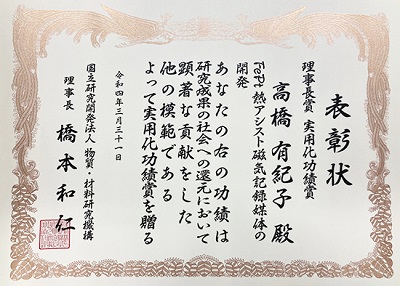 表彰状
理事長賞 実用化功績賞
高橋 有紀子 殿
FePt 熱アシスト磁気記録媒体の
開発
あなたの右の功績は
研究成果の社会への還元において
顕著な貢献をした
他の模範である
よって実用化功績賞を贈る
令和四年三月三十一日
国立研究開発法人 物質・材料研究機構
理事長 橋本和仁